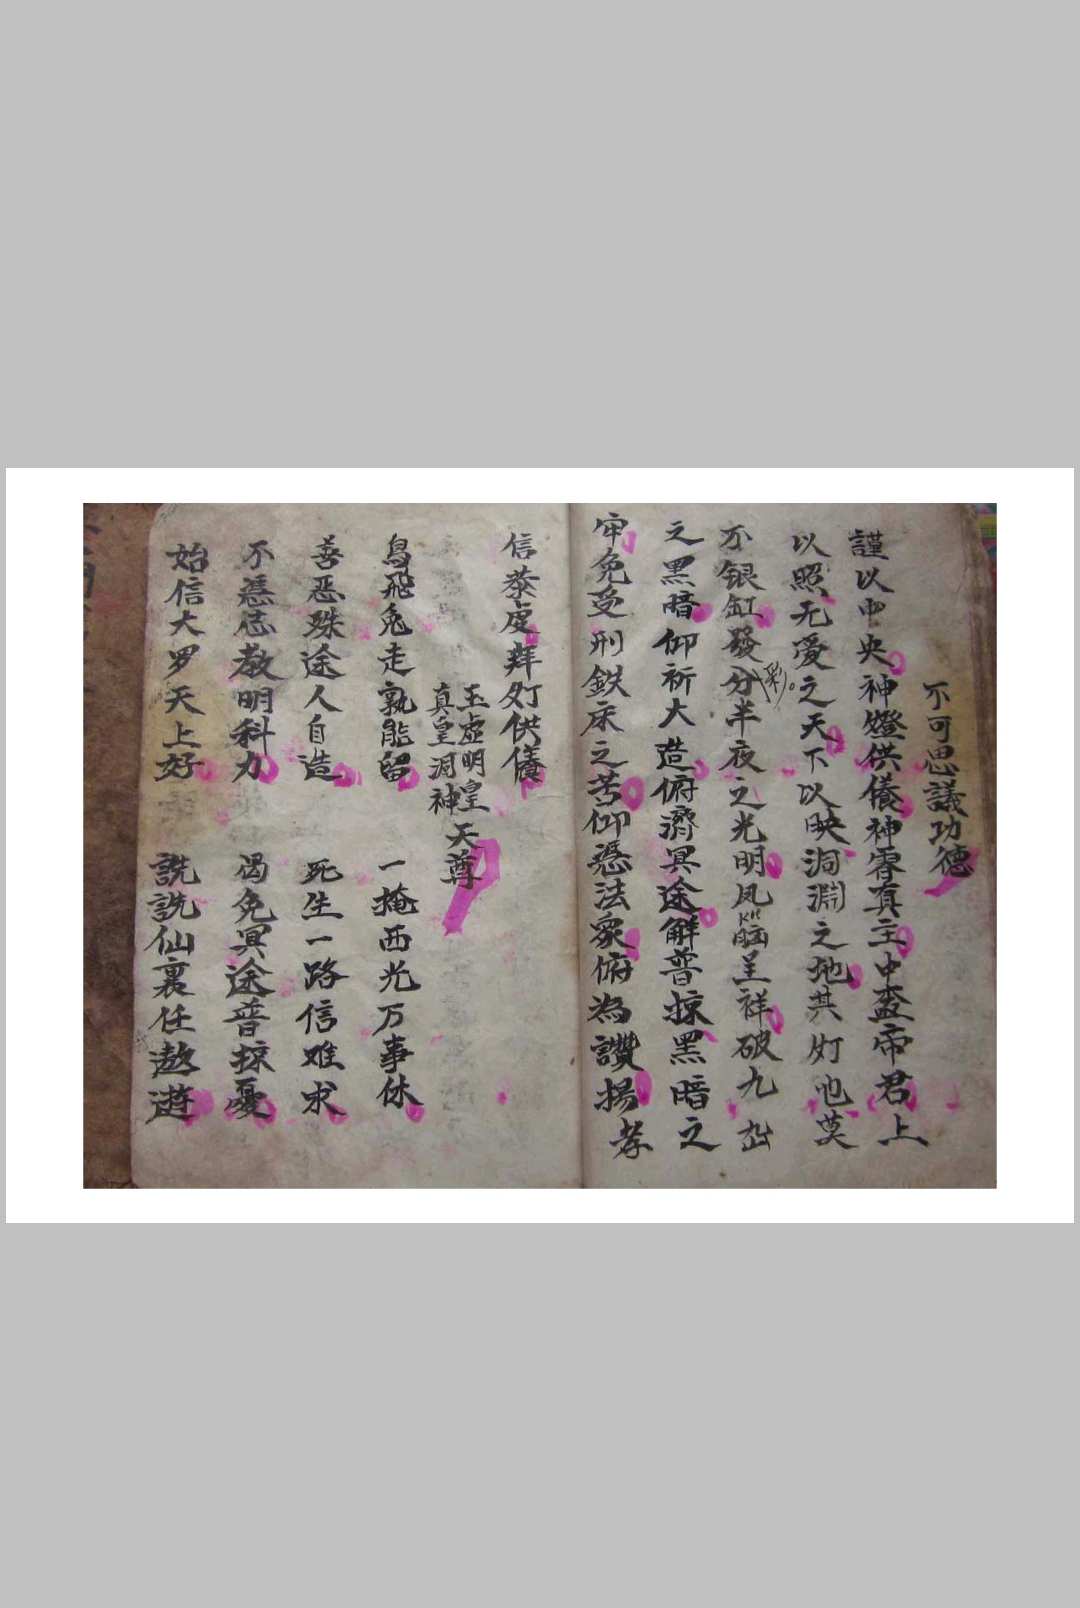 不可思議功德
謹以中央神燈供儀神霄真主中盃帝君上
以照无爱之天下以映洞淵之地其灯也莫
不银缸發分彩半夜之光明凤脳呈祥破九
之黑暗仰祈大造俯濟冥途觧普掠黑暗之
牢免受刑鉄床之苦仰慿法衆俯為讚揚孝
信恭虔拜灯供儀
玉虚明皇
真皇洞神
天尊
鳥飛兔走孰能留
一掩西光万事休
善恶殊途人自造
死生一路信难求
不慿教明科力
曷免冥途普掠憂
始信大罗天上好
詵詵仙裏任遨遊